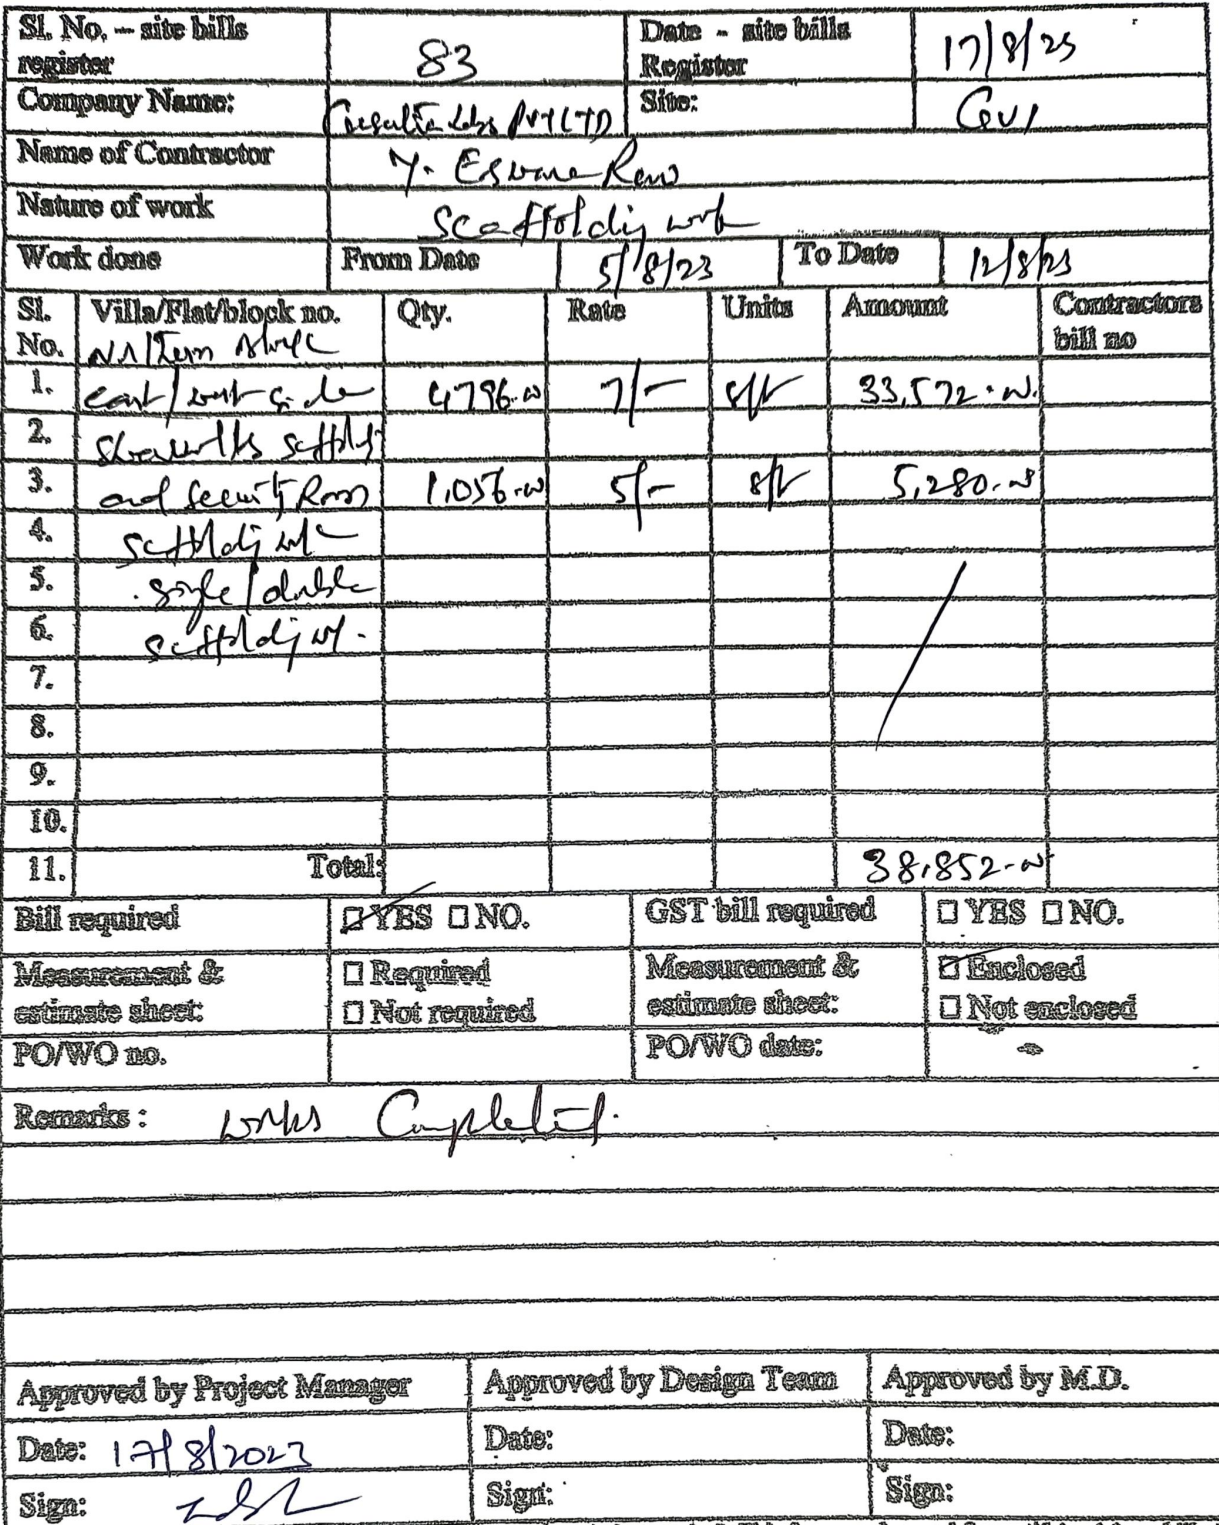 Sl. No. – site bills register 83 Date - site bills Register 17/8/23
Company Name: PVT LTD Site: GV1
Name of Contractor Y. Eswara Rao
Nature of work Scaffolding work
Work done From Date 5/8/23 To Date 12/8/23
Sl. No. Villa/Flat/block no. Qty. Rate Units Amount Contractors bill no
1. east/west side 4796.00 7/- sft 33,572.00
2.
3. and security Room 1,056.00 5/- sft 5,280.00
4. scaffolding work
5. single/double
6. scaffolding wk.
7.
8.
9.
10.
11. Total: 38,852.00
Bill required ☑ YES ☐ NO. GST bill required ☐ YES ☐ NO.
Measurement & estimate sheet: ☐ Required ☐ Not required Measurement & estimate sheet: ☑ Enclosed ☐ Not enclosed
PO/WO no. PO/WO date:
Remarks : works Completed.
Approved by Project Manager Approved by Design Team Approved by M.D.
Date: 17/8/2023 Date: Date:
Sign: Sign: Sign: